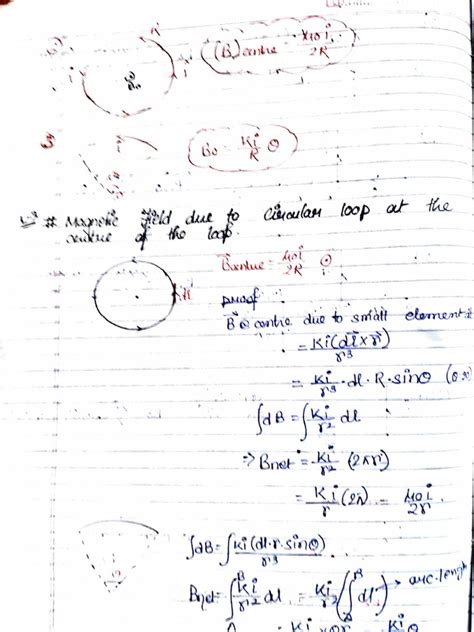 (B) centre = μ0i/2R
i
3
i
B0 = Ki/R θ
# Magnetic field due to circular loop at the
centre of the loop.
Bcentre = μ0i/2R
proof
B @ centre due to small element
= Ki(dl×r)/r³
= Ki/r³ · dl · R · sinθ
∫dB = ∫Ki/r² dl
⇒ Bnet = Ki/r² (2πr)
= Ki/r (2π) = μ0i/2r
∫dB = ∫Ki(dl·r·sinθ)/r³
Bnet = ∫ Ki/r² dl = Ki/r² (∫ dl) → arc-length